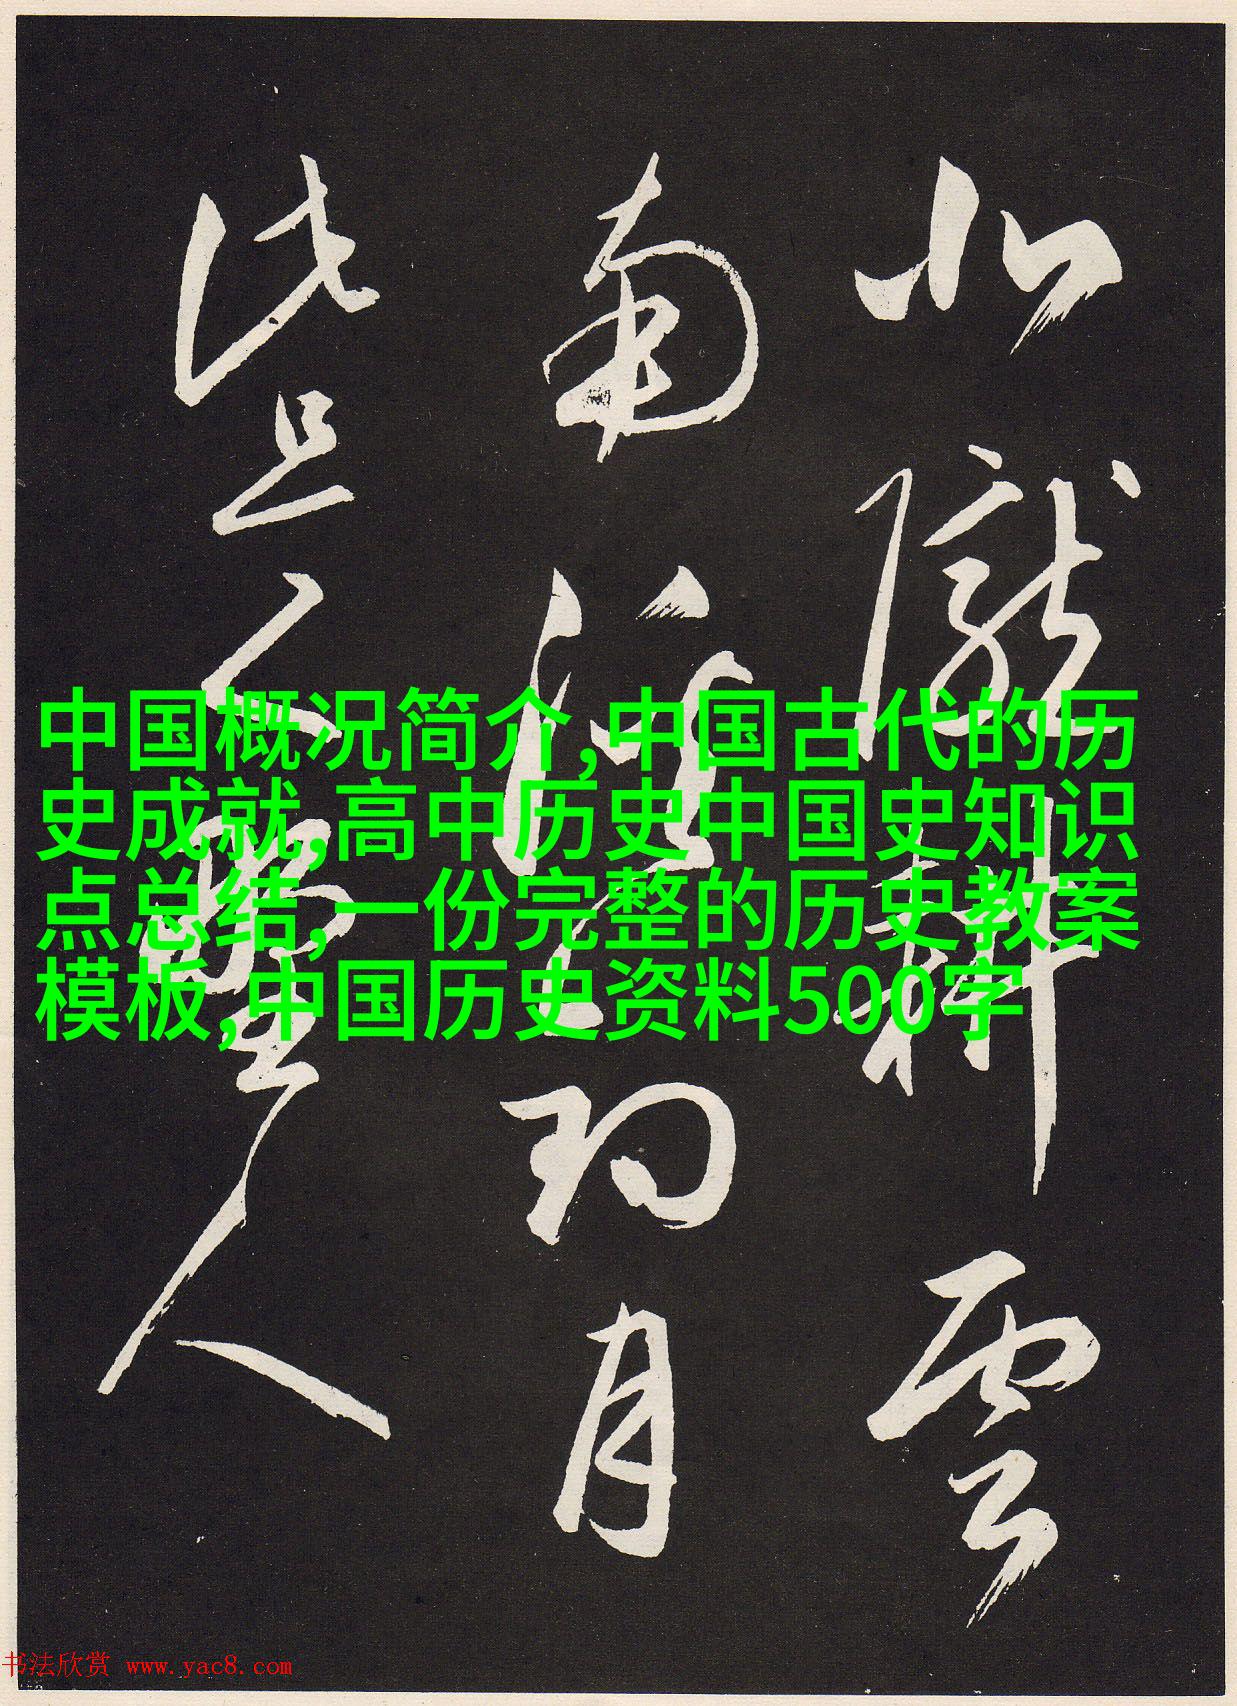 北隴耕雲
南溪釣月
此是野人
中国概况简介,中国古代的历
史成就,高中历史中国史知识
点总结,一份完整的历史教案
模板,中国历史资料500字
书法欣赏 www.yac8.com